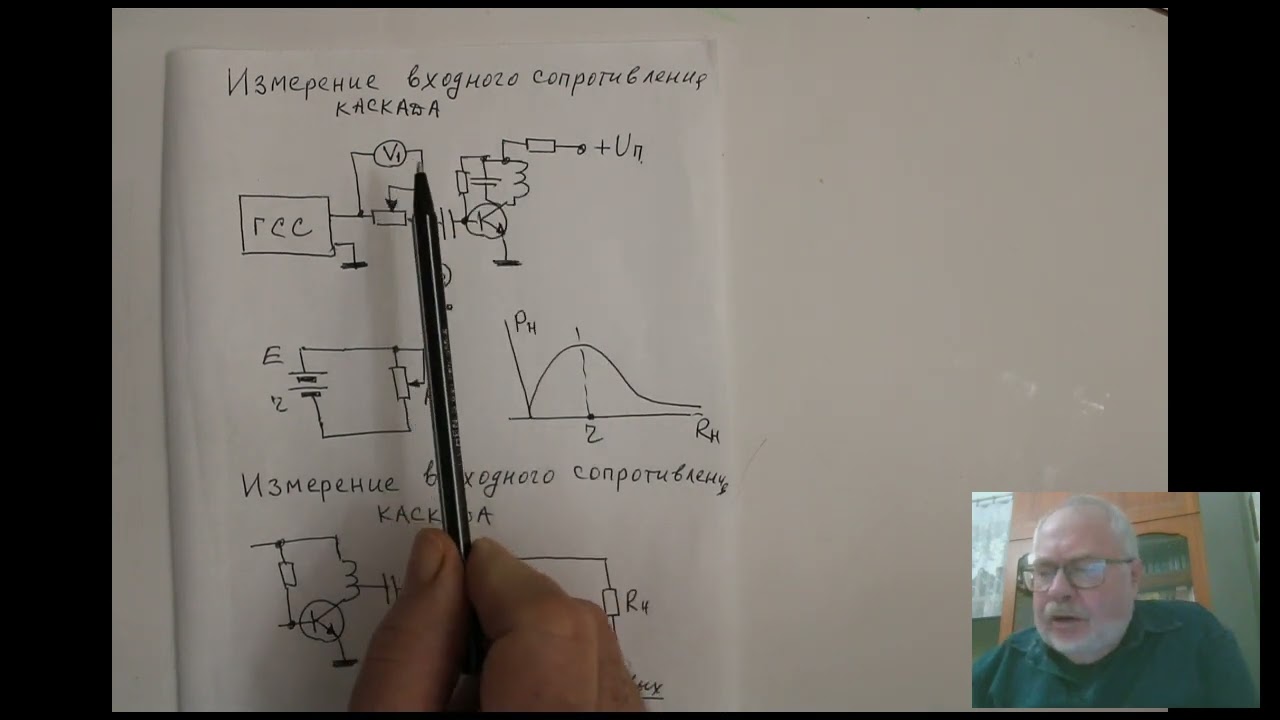 Измерение входного сопротивления
КАСКАДА
V1
+Uп
ГСС
Pн
1
E
r
r
Rн
Измерение входного сопротивлени
КАСКАДА
Rн